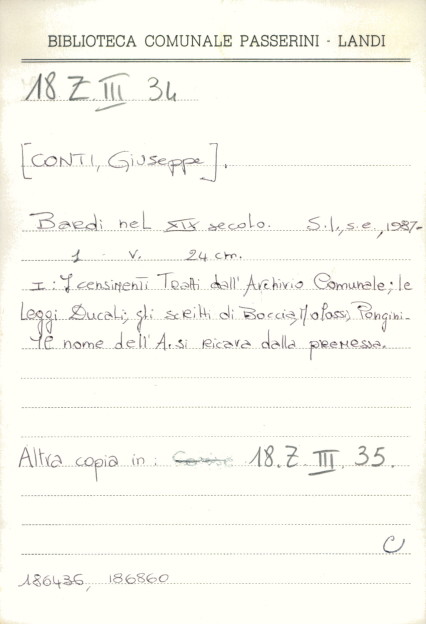 BIBLIOTECA COMUNALE PASSERINI - LANDI
18 Z III 34
[CONTI, Giuseppe].
Bardi nel XIX secolo. S.l., s.e., 1987-
1 v. 24 cm.
I: I censimenti Tratti dall'Archivio Comunale; le
Leggi Ducali; gli scritti di Boccia, Molossi, Pongini.
Il nome dell'A. si ricava dalla premessa.
Altra copia in: 18. Z. III. 35.
C
186435, 186860